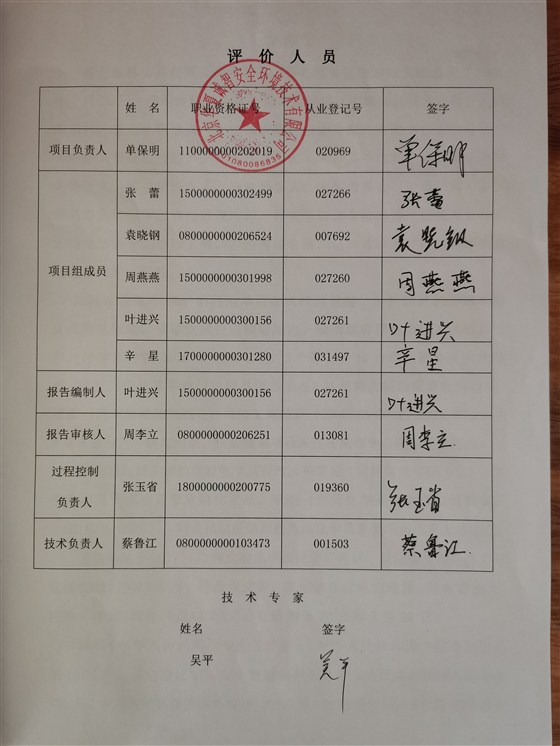 评价人员
姓名 职业资格证号 从业登记号 签字
项目负责人 单保明 1100000000202019 020969 单保明
项目组成员
张蕾 1500000000302499 027266 张蕾
袁晓钢 0800000000206524 007692 袁晓钢
周燕燕 1500000000301998 027260 周燕燕
叶进兴 1500000000300156 027261 叶进兴
辛星 1700000000301280 031497 辛星
报告编制人 叶进兴 1500000000300156 027261 叶进兴
报告审核人 周李立 0800000000206251 013081 周李立
过程控制
负责人
张玉省 1800000000200775 019360 张玉省
技术负责人 蔡鲁江 0800000000103473 001503 蔡鲁江
技术专家
姓名 签字
吴平 吴平
安全环境技术有限公司